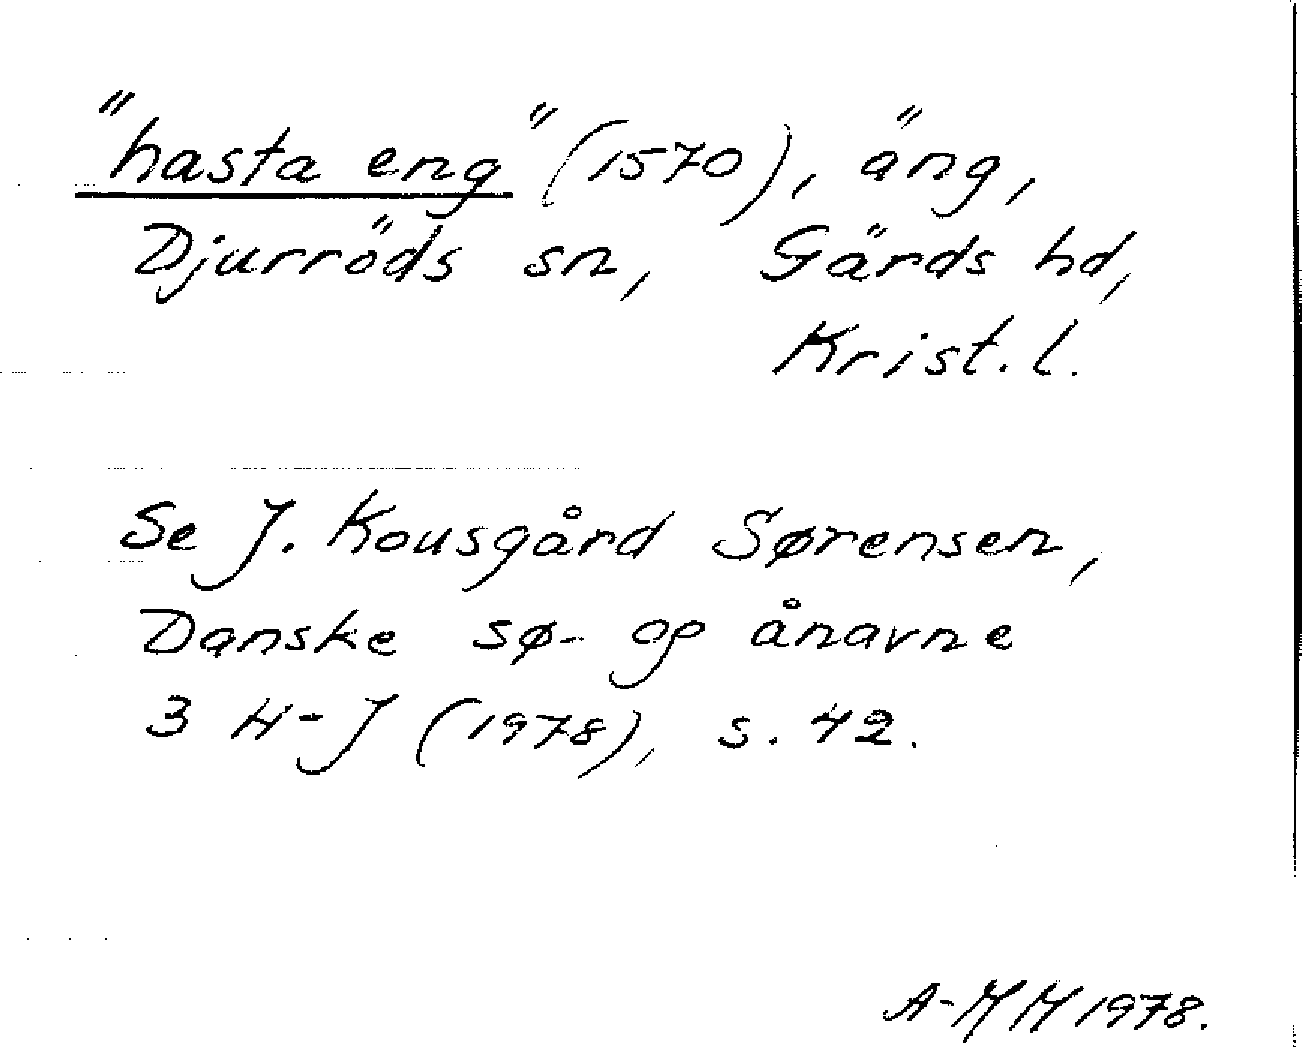 "hasta eng" (1570), äng,
Djurröds sn, Gärds hd,
Krist. l.
Se J. Kousgård Sørensen,
Danske sø- og ånavne
3 H-J (1978), s. 42.
A-MH 1978.